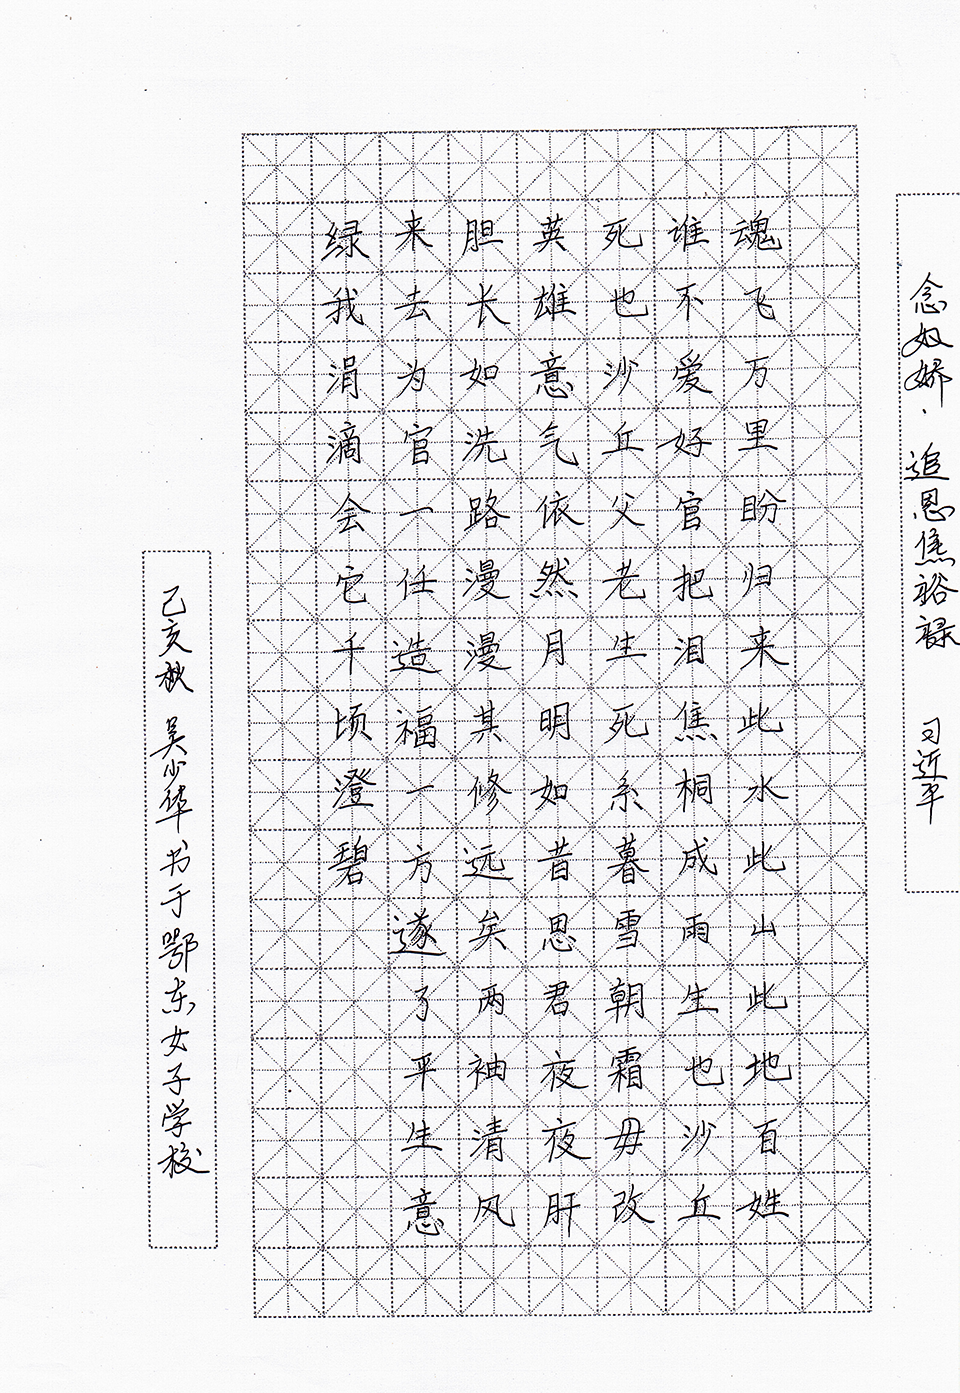 念奴娇·追思焦裕禄 习近平
魂飞万里盼归来此水此山此地百姓
谁不爱好官把泪焦桐成雨生也沙丘
死也沙丘父老生死系暮雪朝霜毋改
英雄意气依然月明如昔思君夜夜肝
胆长如洗路漫漫其修远矣两袖清风
来去为官一任造福一方遂了平生意
绿我涓滴会它千顷澄碧
己亥秋 吴少华书于鄂东女子学校